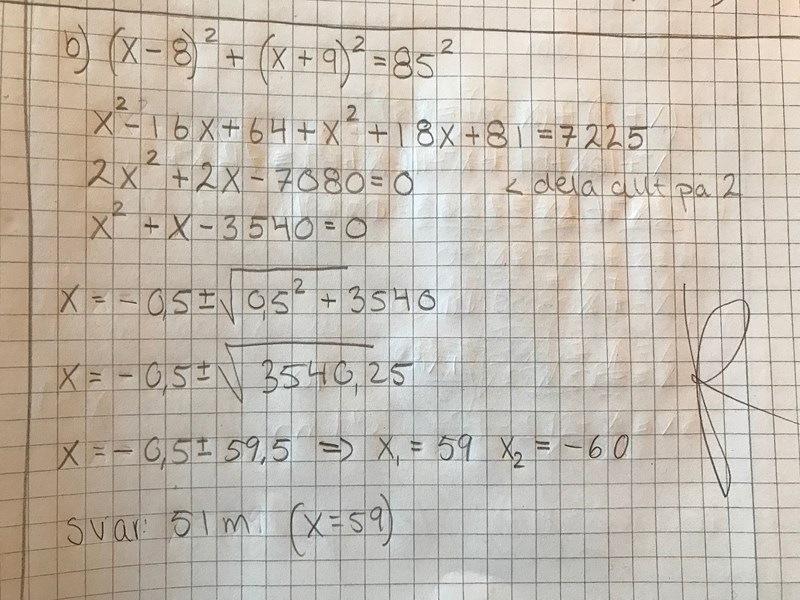 b) (x-8)² + (x+9)² = 85²
x²-16x+64+x²+18x+81=7225
2x²+2x-7080=0 < dela allt på 2
x²+x-3540=0
x = -0,5 ± √0,5² + 3540
x = -0,5 ± √3540,25
x = -0,5 ± 59,5 => x₁ = 59 x₂ = -60
svar: 51 m (x=59)
R